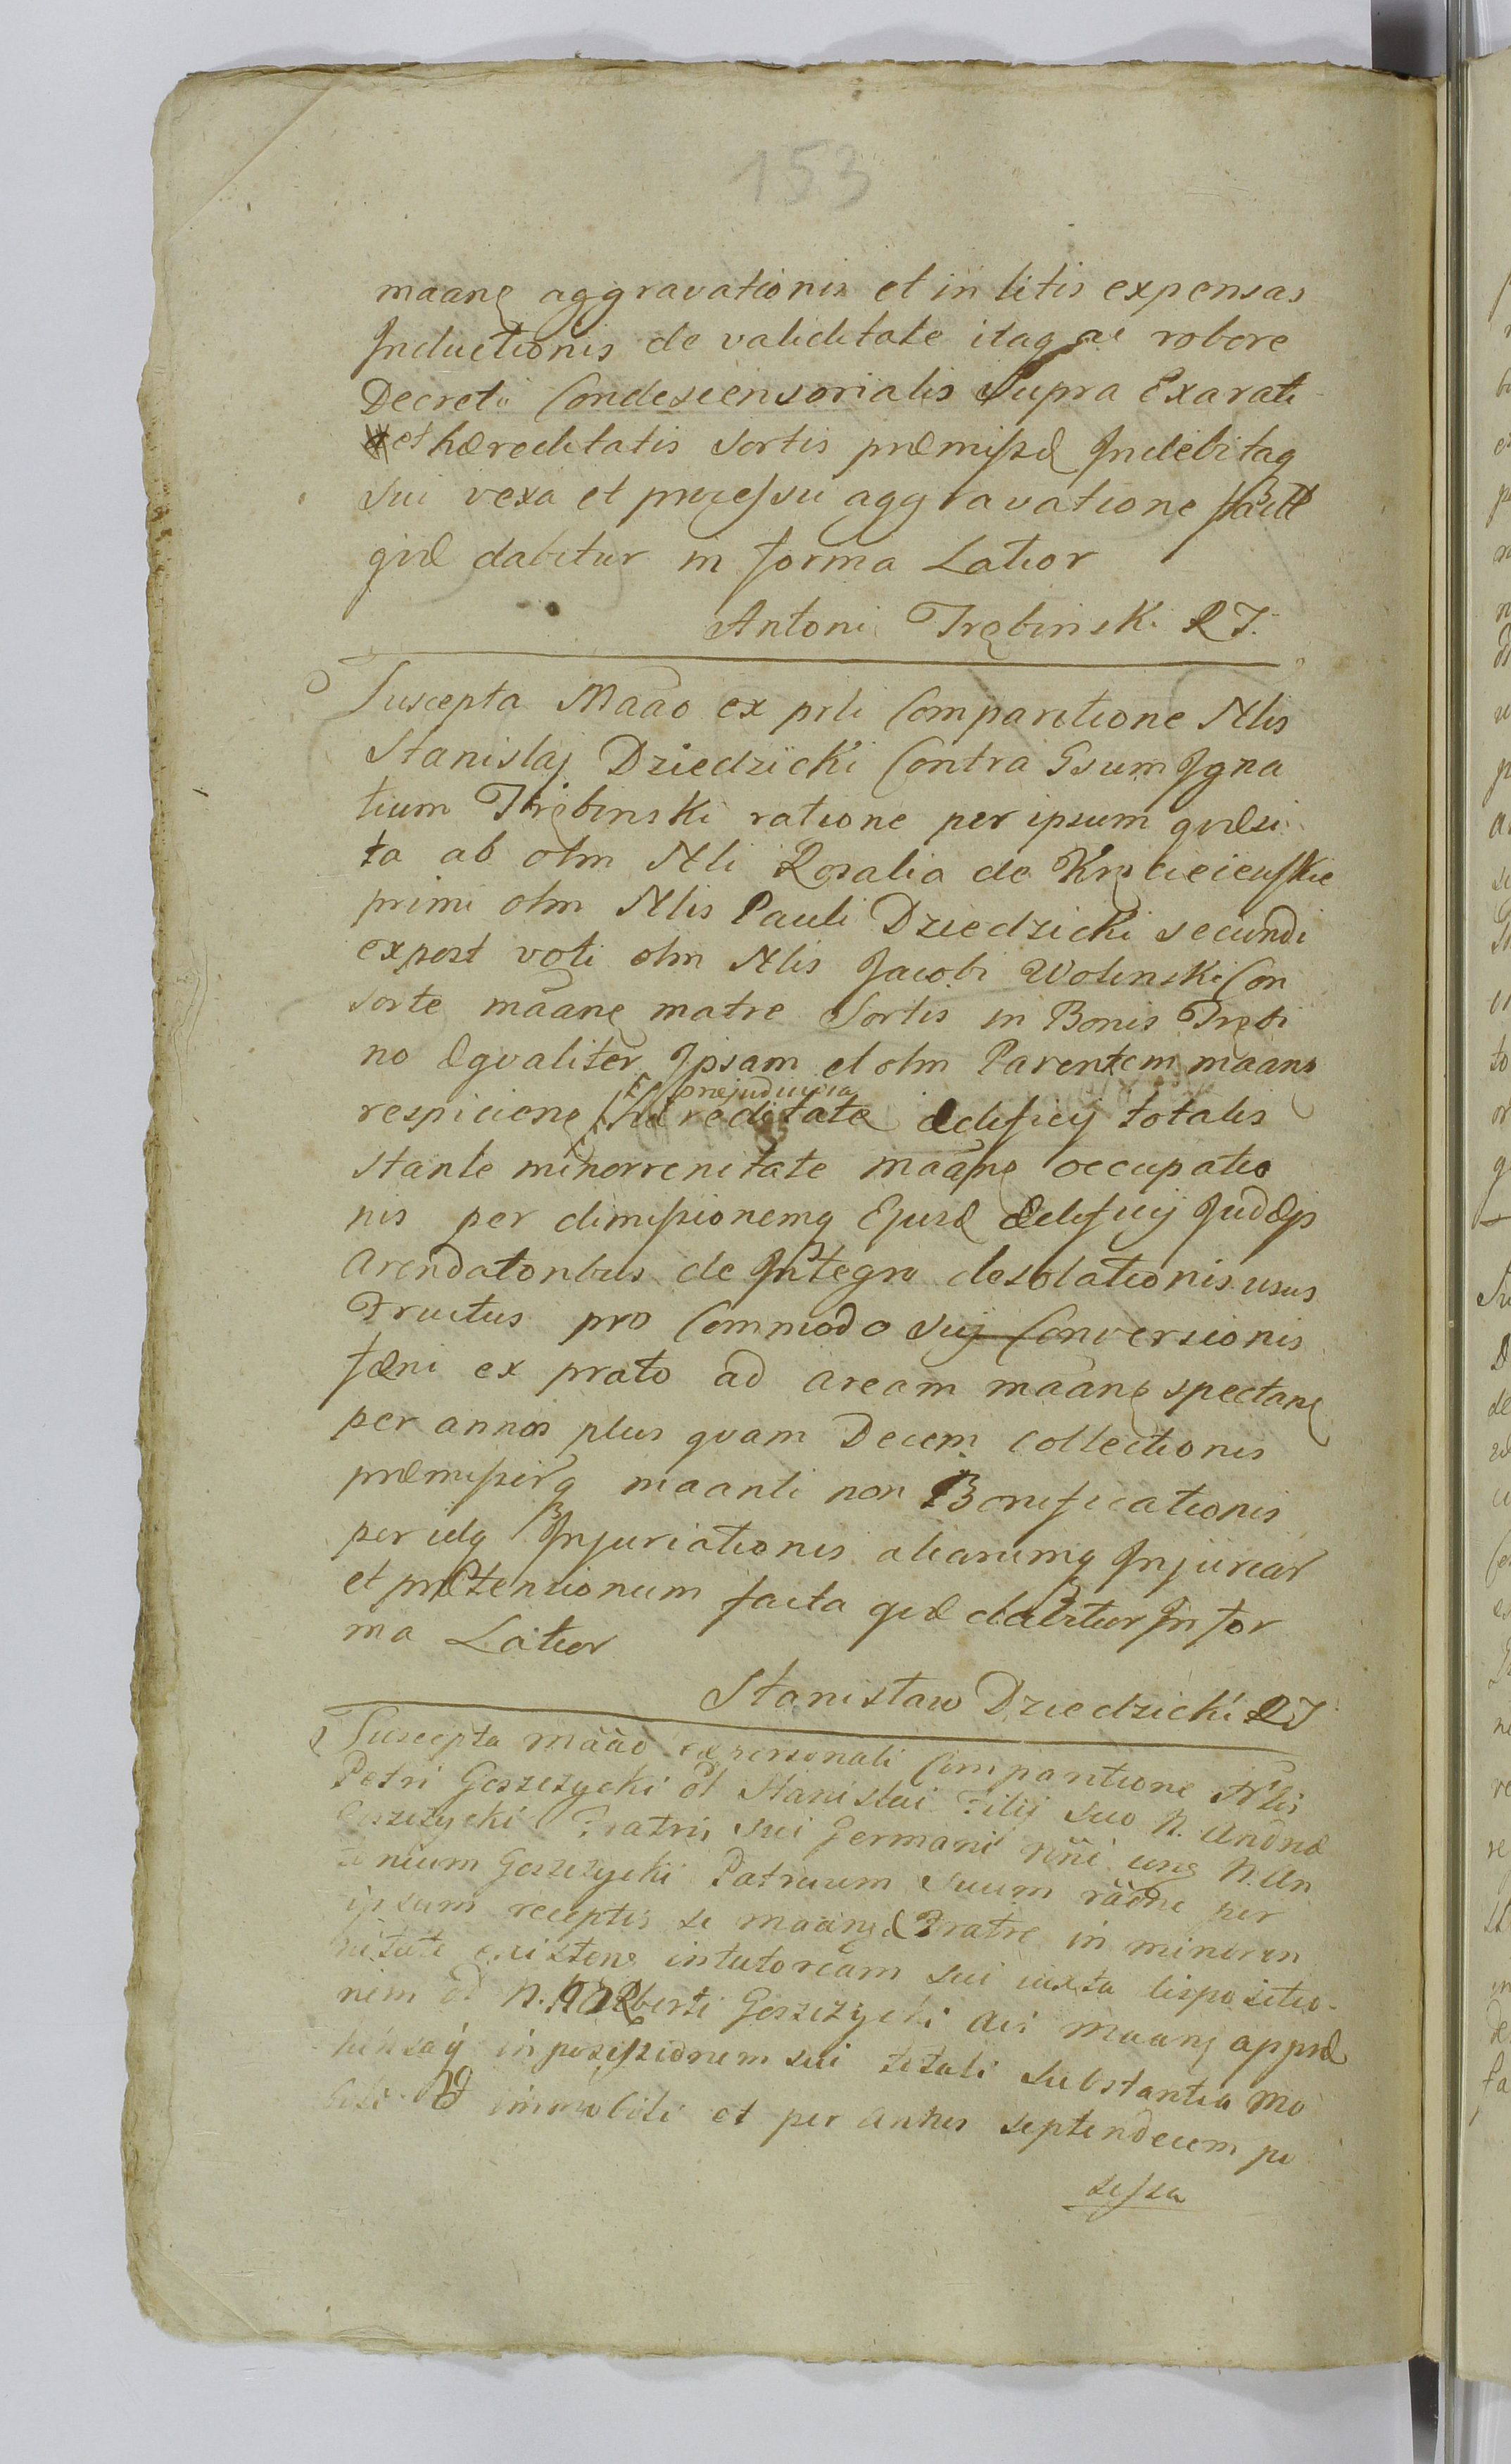 153
maane aggravationis et in litis expensas
Inductionis de validitate itaq ac robore
Decreti Condescensorialis Supra Exarati
et hæreditatis Sortis præmissæ Indebitaq
sui vexa et processu aggravatione facta
qvæ dabitur in forma Latior
Antoni Trębinski RJ.
Suscepta Maão ex prli Comparitione Nlis
Stanislaj Dziedzicki Contra Gsum Igna
tium Trębinski ratione per ipsum qvæsi
ta ab olm Nli Rosalia de
primi olm Nlis Pauli Dziedzicki secundi
expost voti olm Nlis Jacobi Wolinski Con
sorte maane matre Sortis in Bonis Trębi
no æqvaliter Ipsam et olm Parentem maane
præjudiciosa
respiciene hæreditate ædificij totalis
stante minorrenitate maane occupatio
nis per dimissionemq Ejusd ædificij Judæis
Arendatoribus de Integro desolationis usus
Fructus pro Commodo suj Conversionis
fæni ex prato ad aream maane spectane
per annos plus qvam Decem collectionis
præmissorq maanti non Bonificationis
per idq Injuriationis aliarumq Injuriar
et prætensionum facta qvæ dabitur In for
ma Latior
Stanisław Dziedzicki RJ
Suscepta mãão ex personali Comparitione Nlis
Petri Goszczycki ol Stanislai Filij suo N. Andreæ
Goszczycki Fratris sui Germani nni une N. An
tonium Goszczycki Patruum Suum raone per
ipsum receptis se maane Fratre in minoren
nitate existene in tutoriam sui iuxta dispositio-
nem ol N. Alberti Goszczycki Avi maane appræ
hensaq in possessionem sui totali Substantia mo
bili et immobili et per annos septendecem po
sessa